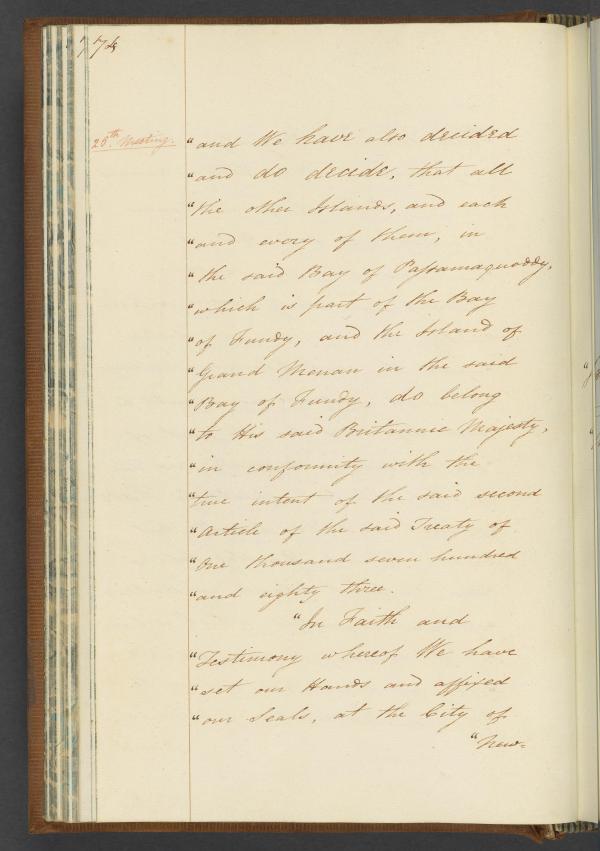 774
25th Meeting.
"and We have also decided
"and do decide, that all
"the other Islands, and each
"and every of them, in
"the said Bay of Passamaquoddy,
"which is part of the Bay
"of Fundy, and the Island of
"Grand Menan in the said
"Bay of Fundy, do belong
"to His said Britannic Majesty,
"in conformity with the
"true intent of the said second
"Article of the said Treaty of
"One thousand seven hundred
"and eighty three.
"In Faith and
"Testimony whereof We have
"set our Hands and affixed
"our Seals, at the City of
"New-